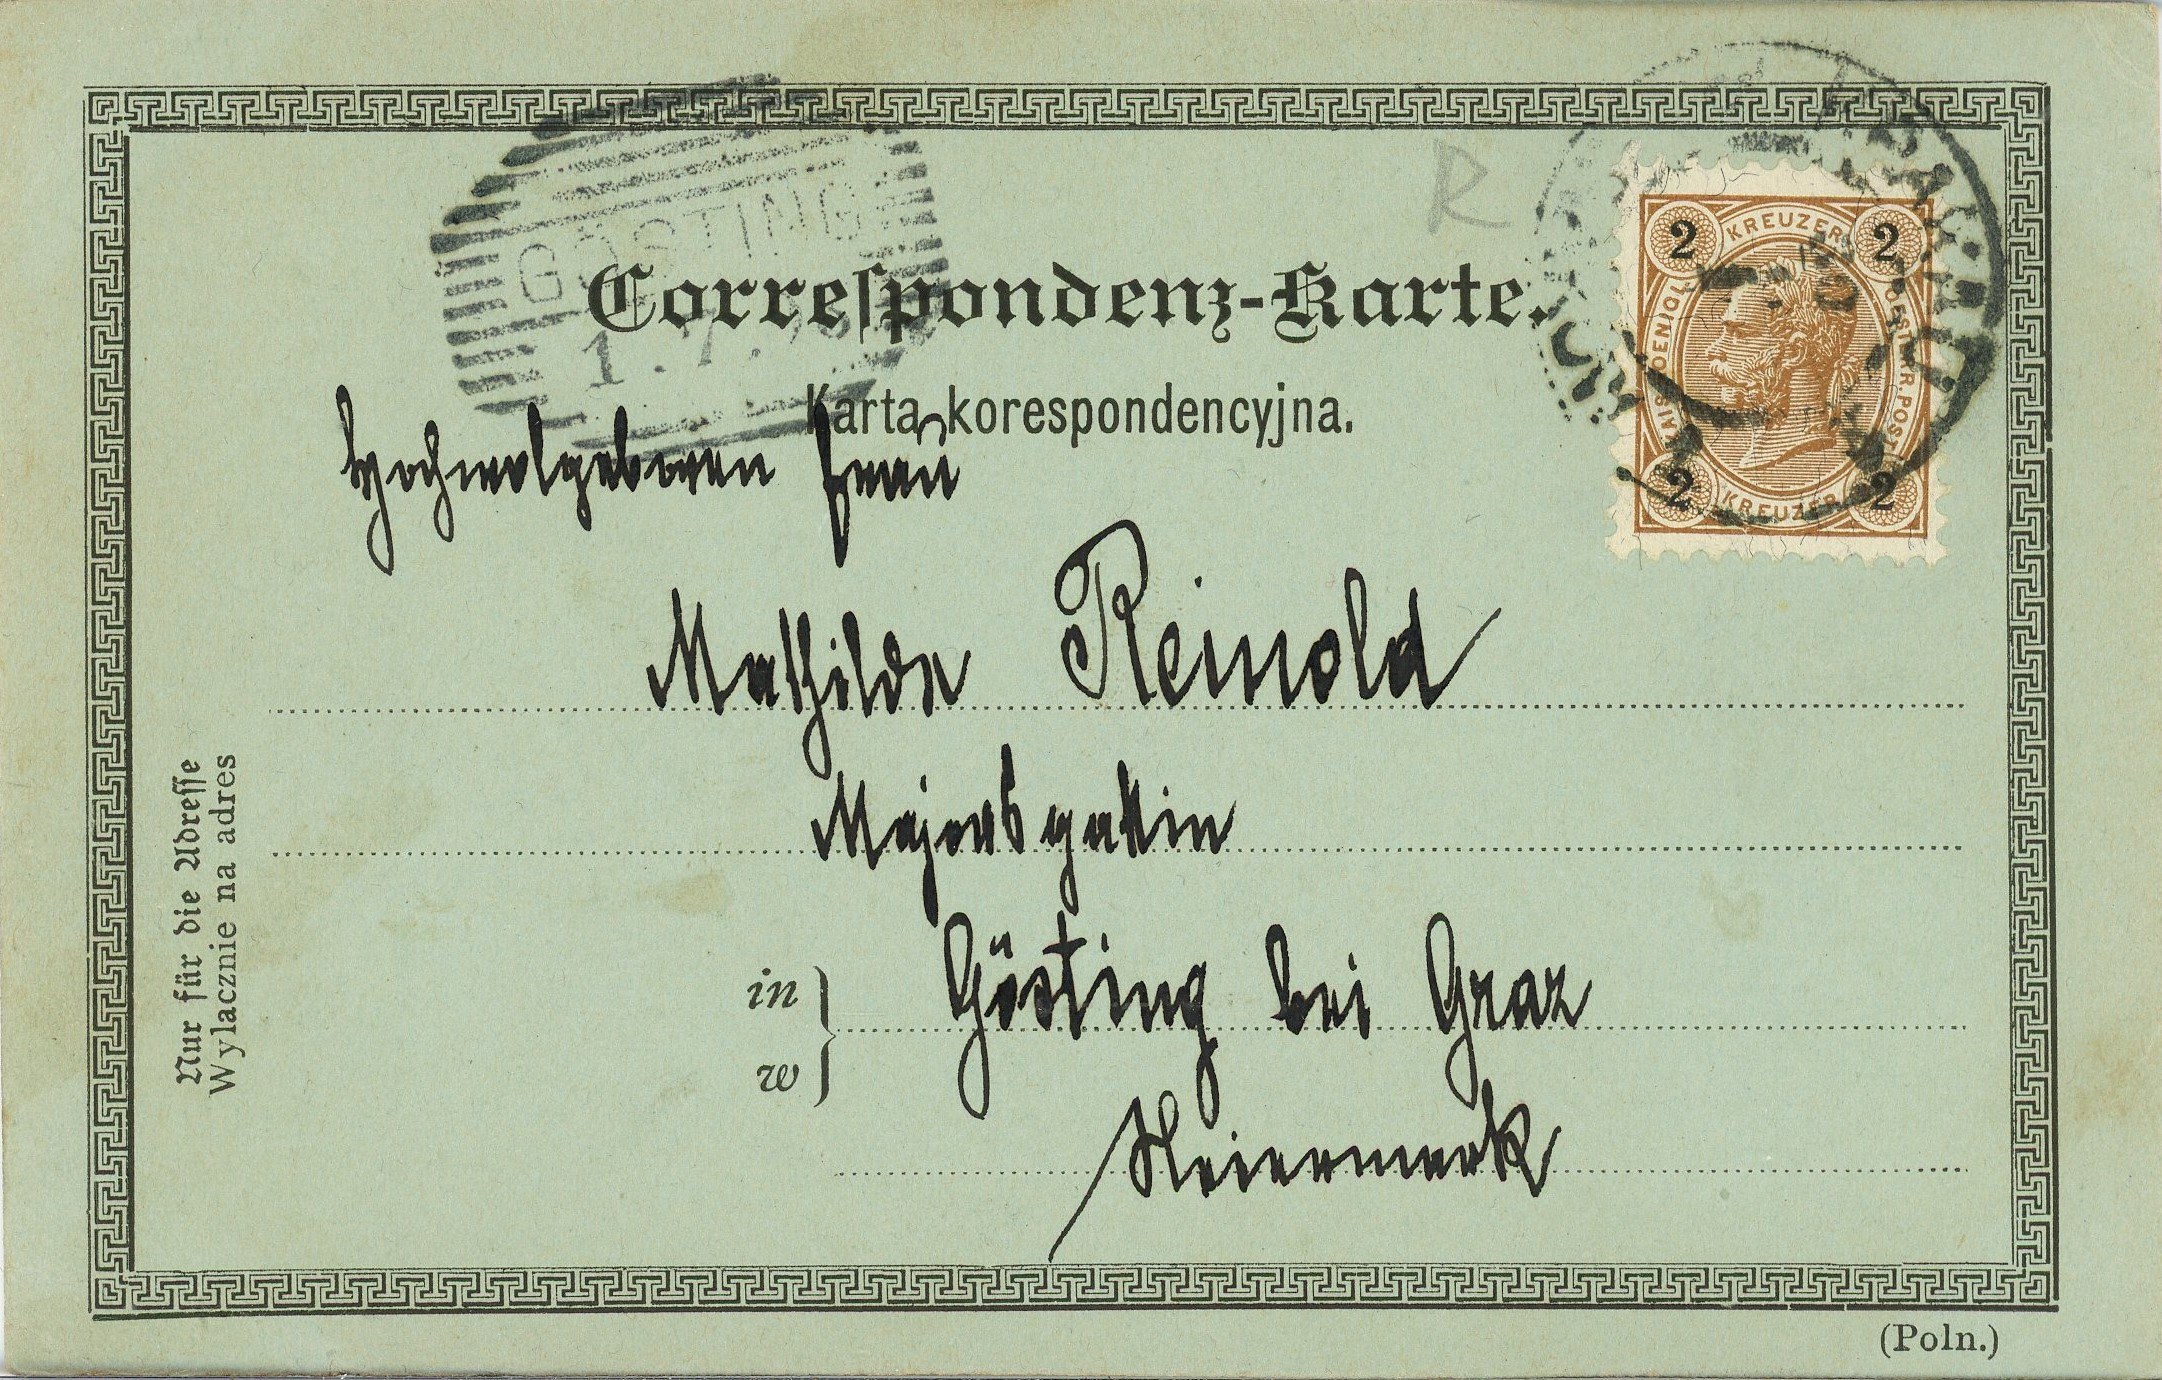 GÖSTING
1.7.
R
2 KREUZER 2
KAIS. KOENIGL. OESTERR. POST
2 KREUZER 2
Correspondenz-Karte.
Karta korespondencyjna.
Hochwolgeboren Frau
Mathilde Reinold
Majorsgattin
in Gösting bei Graz
w
Steiermark
Nur für die Adresse
Wylacznie na adres
(Poln.)